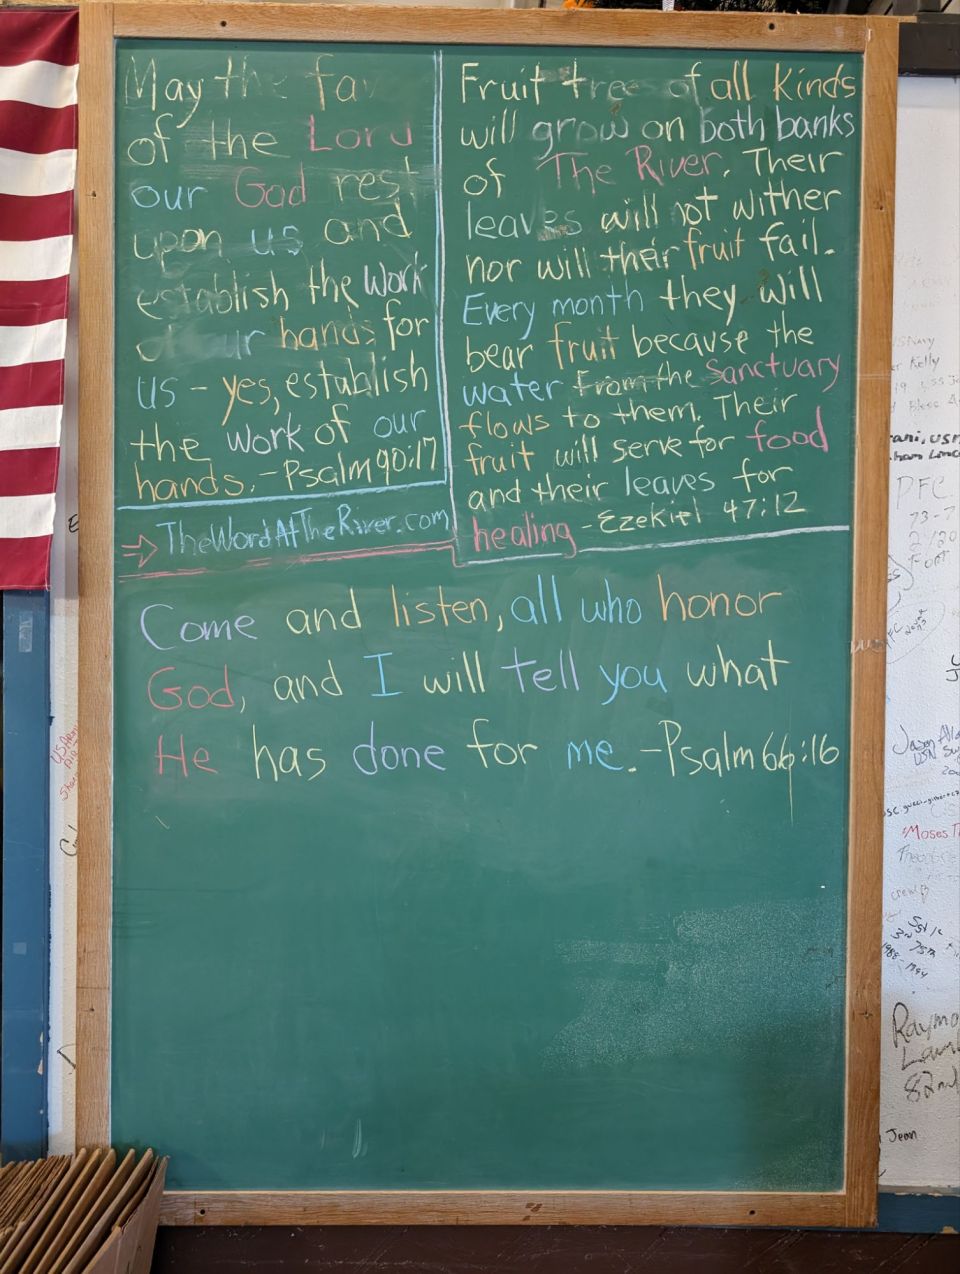 May the fav
of the Lord
our God rest
upon us and
establish the work
of our hands for
us - yes, establish
the work of our
hands. - Psalm 90:17
Fruit trees of all kinds
will grow on both banks
of The River. Their
leaves will not wither
nor will their fruit fail.
Every month they will
bear fruit because the
water from the Sanctuary
flows to them. Their
fruit will serve for food
and their leaves for
healing - Ezekiel 47:12
TheWordAtTheRiver.com
Come and listen, all who honor
God, and I will tell you what
He has done for me. - Psalm 66:16
Kelly
PFC
73-7
2/20
Fort
Moses
crew
Sgt
3rd
75th
1988 - May
82nd
Jean